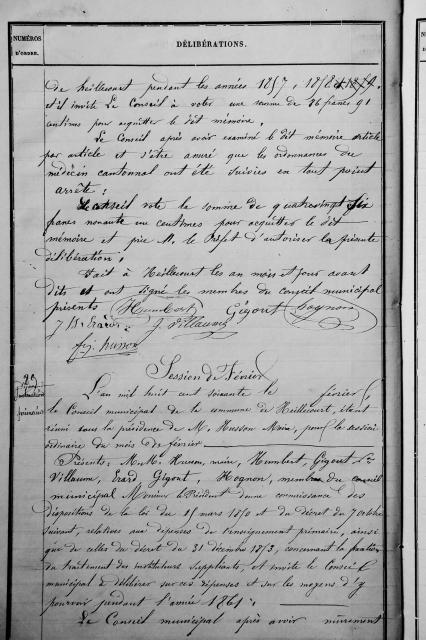 NUMÉROS
D'ORDRE.
DÉLIBÉRATIONS.
de heillecourt pendant les années 1857, 1858 et 1859,
et il invite Le Conseil à voter une somme de 86 francs 91
centimes pour acquitter le dit mémoire.
Le Conseil après avoir examiné le dit mémoire article
par article et s'être assuré que les ordonnances du
médecin cantonnal ont été suivies en tout point
arrête :
Le conseil vote la somme de quatrevingt six
francs nonante un centimes pour acquitter le dit
mémoire et prie M. le Préfet d'autoriser la présente
délibération.
Fait à Heillecourt les an mois et jour avant
dits et ont signé les membres du conseil municipal
présents Humbert Gigout Hognon
J. Villaume
husson
29
Instruction
primaire
Session de Février
L'an mil huit cent soixante le février,
le Conseil municipal de la commune de Heillecourt, étant
réuni sous la présidence de M. Husson Maire, pour la session
ordinaire du mois de février
Présents : M.M. Husson, maire, Humbert, Gigout
Villaume, Erard Gigout, Hognon, membres du conseil
municipal Monsieur le Président donne connaissance des
dispositions de la loi du 15 mars 1850 et du décret du 7 octobre
suivant, relatives aux dépenses de l'enseignement primaire, ainsi
que de celles du décret du 31 décembre 1853, concernant la fixation
du traitement des instituteurs suppléants, et invite le Conseil
municipal à délibérer sur ces dépenses et sur les moyens d'y
pourvoir pendant l'année 1861 :
Le Conseil municipal après avoir mûrement